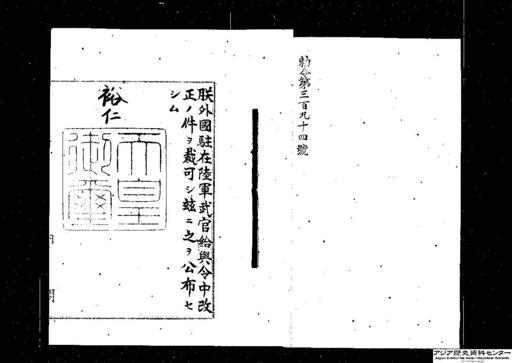 勅令第三百九十四號
朕外國駐在陸軍武官給與令中改
正ノ件ヲ裁可シ玆ニ之ヲ公布セ
シム
裕仁
天皇
御璽
アジア歴史資料センター
Japan Center for Asian Historical Records